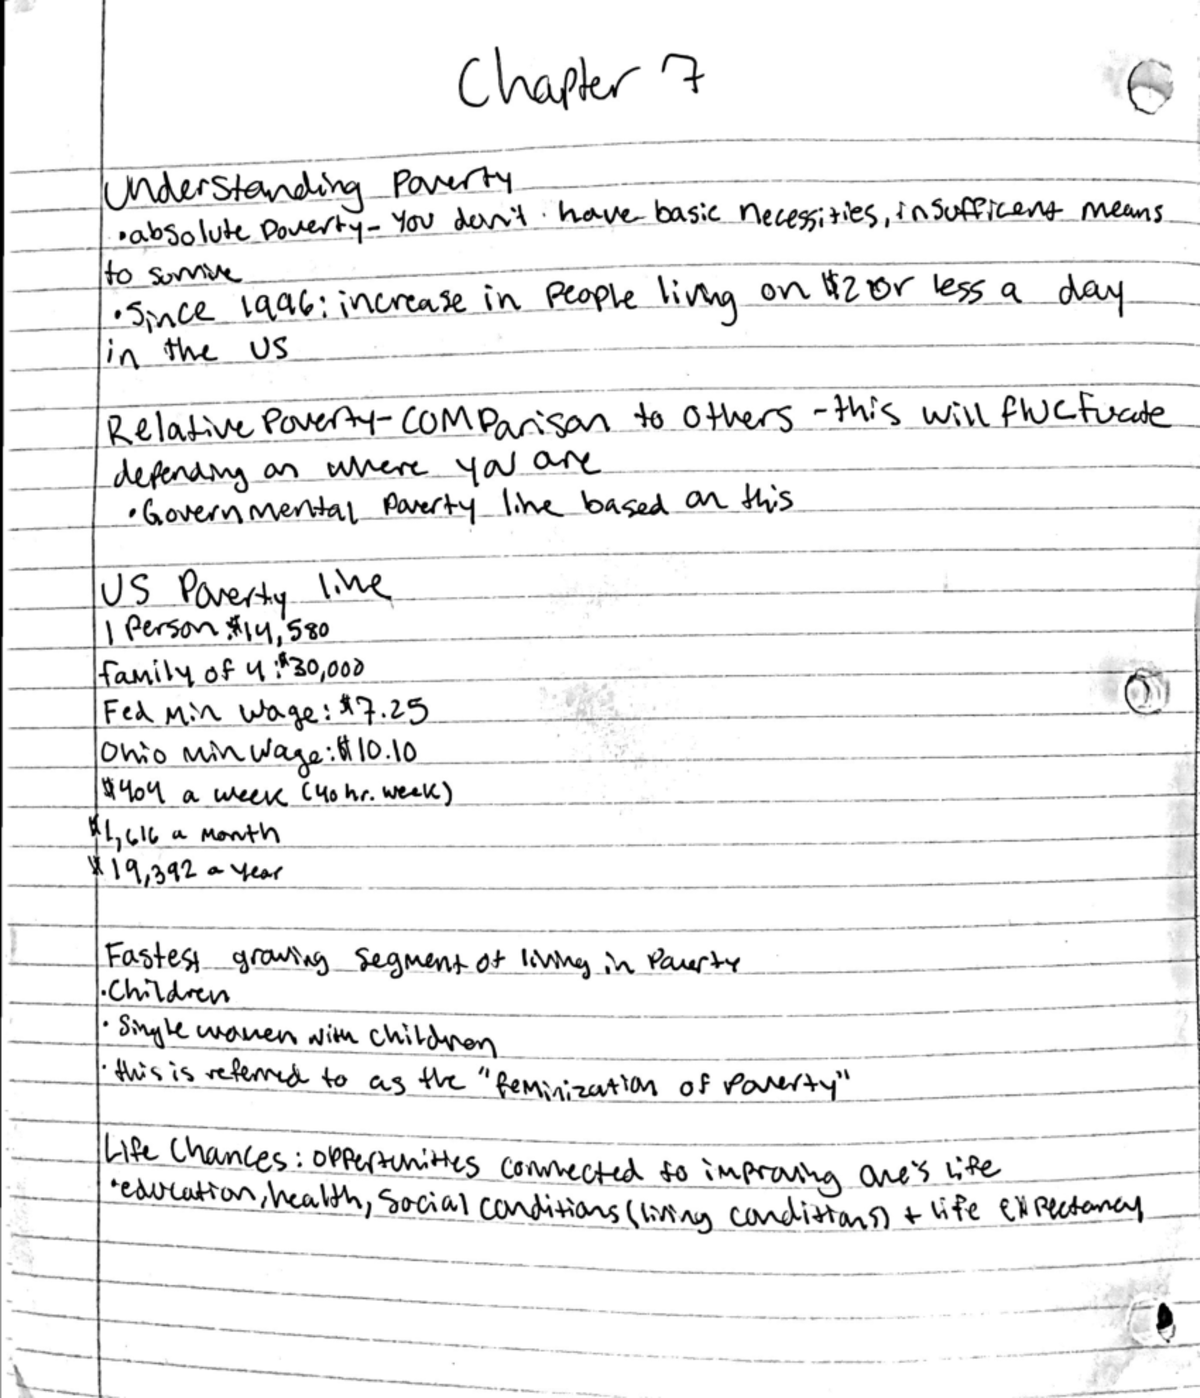 Chapter 7
Understanding Poverty
•absolute Poverty- You don't have basic necessities, insufficent means
to survive
•Since 1996: increase in People living on $2 or less a day
in the US
Relative Poverty-Comparison to others -this will fluctuate
depending on where you are
•Governmental Poverty line based on this
US Poverty line
1 Person: $14,580
family of 4: $30,000
Fed Min Wage: $7.25
Ohio min Wage: $10.10
$404 a week (40 hr. week)
$1,616 a Month
$19,392 a year
Fastest growing segment of living in Poverty
•Children
•Single women with children
•this is referred to as the "feminization of Poverty"
Life Chances: opportunities connected to improving one's life
•education, health, Social conditions (living conditions) + life expectancy